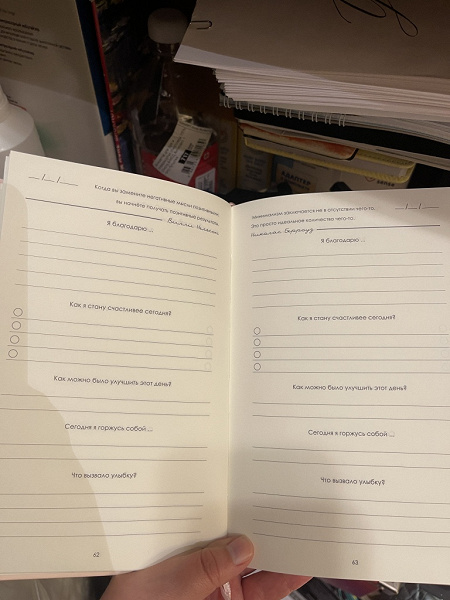 __/__/__
Когда вы замените негативные мысли позитивными,
вы начнёте получать позитивные результаты.
Вилли Нельсон
Я благодарю ...
Как я стану счастливее сегодня?
Как можно было улучшить этот день?
Сегодня я горжусь собой ...
Что вызвало улыбку?
62
__/__/__
Минимализм заключается не в отсутствии чего-то.
Это просто идеальное количество чего-то.
Николас Берроуз
Я благодарю ...
Как я стану счастливее сегодня?
Как можно было улучшить этот день?
Сегодня я горжусь собой ...
Что вызвало улыбку?
63
АДАПТЕР